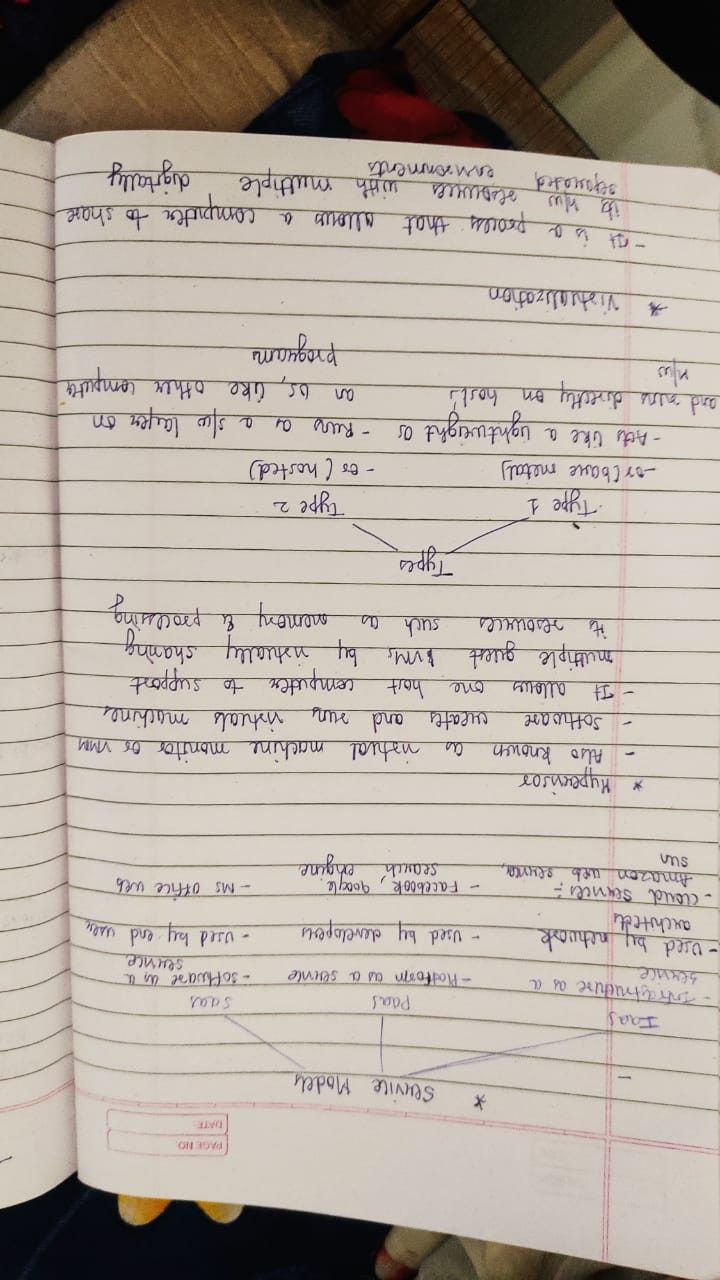 PAGE NO.
DATE:
* Service Models
Iaas
- Infrastructure as a
service
- Used by network
architects
- Cloud Services :-
Amazon web service,
sun
Paas
- Platform as a service
- Used by developers
- Facebook, google
search engine
Saas
- Software as a
service
- Used by end user
- MS Office web
* Hypervisor
- Also known as virtual machine monitor or VMM
- Software creates and runs virtuals machines
- It allows one host computer to support
multiple guest VMs by virtually sharing
its resources such as memory & processing
Types
Type 1
- or (bare metal)
- Acts like a lightweight OS
and runs directly on host's
H/w
Type 2
- or (hosted)
- Runs as a s/w layer on
an OS, like other computer
programs
* Virtualization
- It is a process that allows a computer to share
its H/w resources with multiple digitally
separated environments